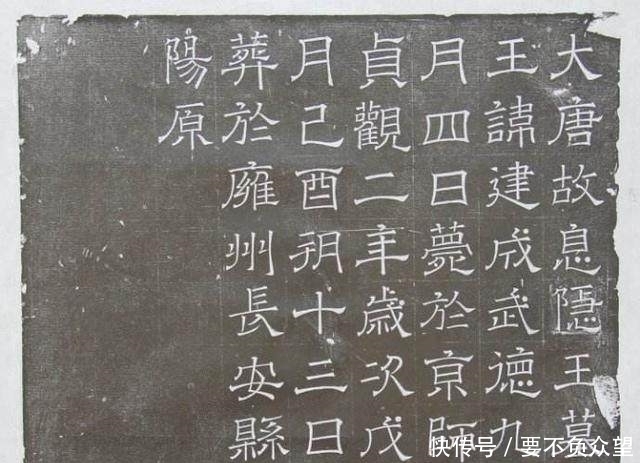 大唐故息隱王墓
王諱建成武德九
月四日薨於京師
貞觀二年歲次戊
月己酉朔十三日
葬於雍州長安縣
陽原
快传号 / 要不负众望